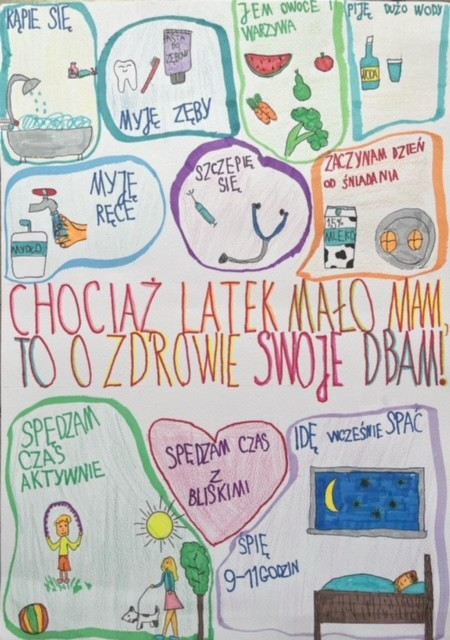 KĄPIE SIĘ
MYJĘ ZĘBY
PASTA
DO
ZĘBÓW
JEM OWOCE I
WARZYWA
PIJĘ DUŻO WODY
WODA
MYJĘ
RĘCE
MYDŁO
SZCZEPIĘ
SIĘ
ZACZYNAM DZIEŃ
OD ŚNIADANIA
1,5%
MLEKO
CHOCIAŻ LATEK MAŁO MAM,
TO O ZDROWIE SWOJE DBAM!
SPĘDZAM
CZAS
AKTYWNIE
SPĘDZAM CZAS
Z
BLISKIMI
IDĘ WCZEŚNIE SPAĆ
ŚPIĘ
9-11 GODZIN